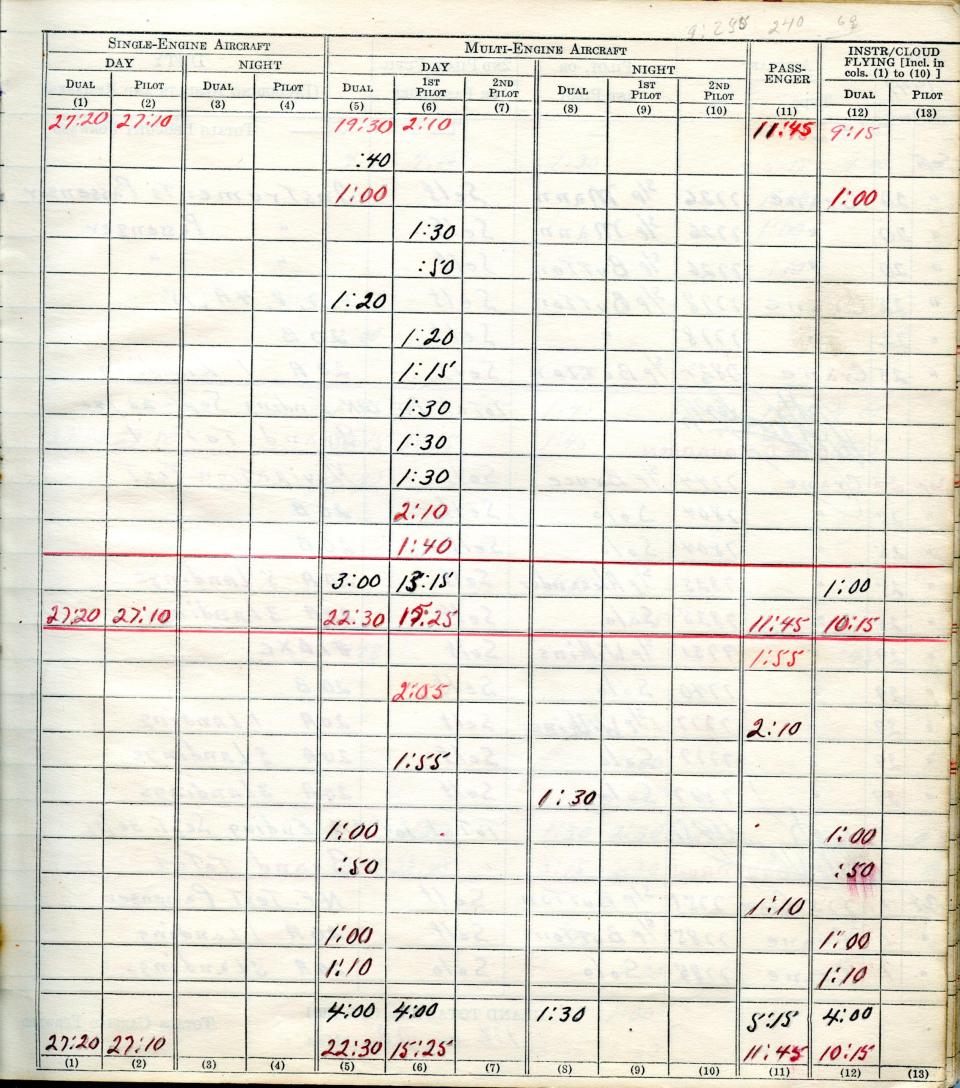 240
SINGLE-ENGINE AIRCRAFT MULTI-ENGINE AIRCRAFT PASS-ENGER INSTR/CLOUD FLYING [Incl. in cols. (1) to (10) ]
DAY NIGHT DAY NIGHT
DUAL PILOT DUAL PILOT DUAL 1ST PILOT 2ND PILOT DUAL 1ST PILOT 2ND PILOT DUAL PILOT
(1) (2) (3) (4) (5) (6) (7) (8) (9) (10) (11) (12) (13)
27:20 27:10 19:30 2:10 11:45 9:15
:40
1:00 1:00
1:30
:50
1:20
1:20
1:15
1:30
1:30
1:30
2:10
1:40
3:00 13:15 1:00
27:20 27:10 22:30 15:25 11:45 10:15
1:55
2:05
2:10
1:55
1:30
1:00 1:00
:50 :50
1:10
1:00 1:00
1:10 1:10
4:00 4:00 1:30 5:15 4:00
27:20 27:10 22:30 15:25 11:45 10:15
(1) (2) (3) (4) (5) (6) (7) (8) (9) (10) (11) (12) (13)